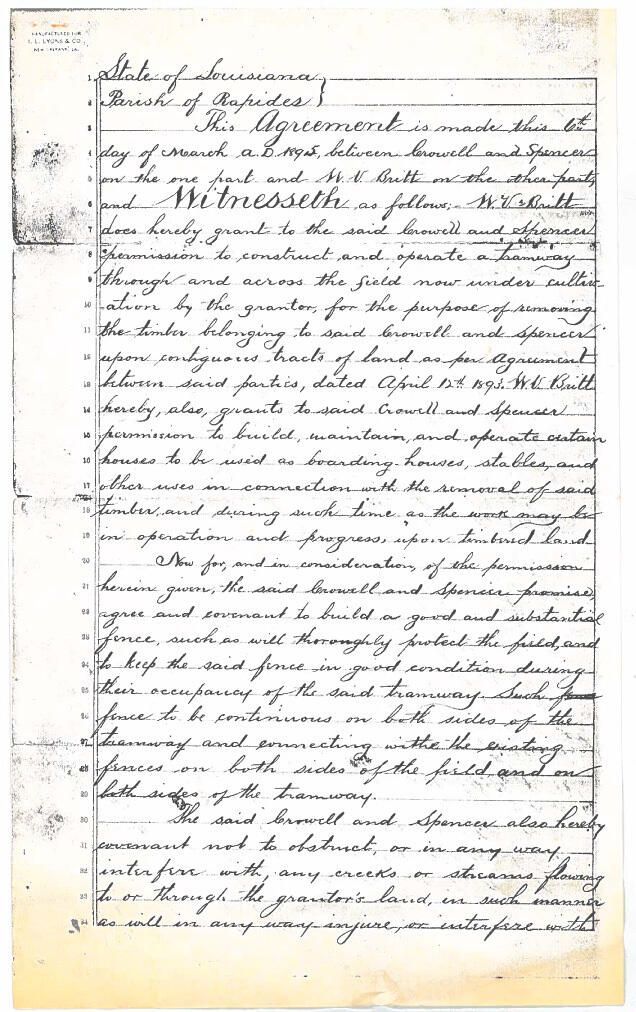 MANUFACTURED FOR
I. L. LYONS & CO.
NEW ORLEANS, LA.
1 State of Louisiana }
2 Parish of Rapides }
3 This Agreement is made this 6th
4 day of March A.D. 1895, between Crowell and Spencer
5 on the one part and W. V. Britt on the other part,
6 and Witnesseth as follows: W. V. Britt
7 does hereby grant to the said Crowell and Spencer
8 permission to construct and operate a tramway
9 through and across the field now under cultiv-
10 ation by the grantor, for the purpose of removing
11 the timber belonging to said Crowell and Spencer
12 upon contiguous tracts of land as per Agreement
13 between said parties, dated April 12th 1893. W. V. Britt
14 hereby, also, grants to said Crowell and Spencer
15 permission to build, maintain, and operate certain
16 houses to be used as boarding-houses, stables, and
17 other uses in connection with the removal of said
18 timber, and during such time as the work may be
19 in operation and progress, upon timbered land.
20 Now for, and in consideration, of the permission
21 herein given, the said Crowell and Spencer promise,
22 agree and covenant to build a good and substantial
23 fence, such as will thoroughly protect the field, and
24 to keep the said fence in good condition during
25 their occupancy of the said tramway. Such
26 fence to be continuous on both sides of the
27 tramway and connecting withe the existing
28 fences on both sides of the field and on
29 both sides of the tramway.
30 The said Crowell and Spencer also hereby
31 covenant not to obstruct, or in any way
32 interfere with, any creeks or streams flowing
33 to or through the grantor's land, in such manner
34 as will in any way injure, or interfere with